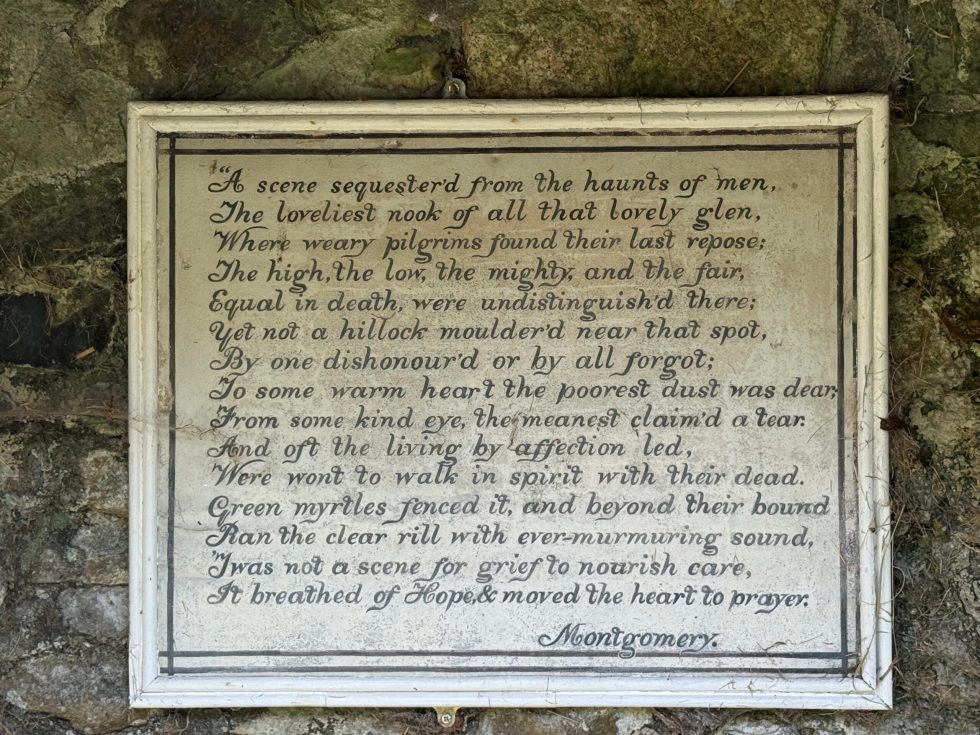 "A scene sequester'd from the haunts of men,
The loveliest nook of all that lovely glen,
Where weary pilgrims found their last repose;
The high, the low, the mighty, and the fair,
Equal in death, were undistinguish'd there;
Yet not a hillock moulder'd near that spot,
By one dishonour'd or by all forgot;
To some warm heart the poorest dust was dear,
From some kind eye, the meanest claim'd a tear.
And oft the living by affection led,
Were wont to walk in spirit with their dead.
Green myrtles fenced it, and beyond their bound
Ran the clear rill with ever-murmuring sound,
'Twas not a scene for grief to nourish care,
It breathed of Hope, & moved the heart to prayer.
Montgomery.